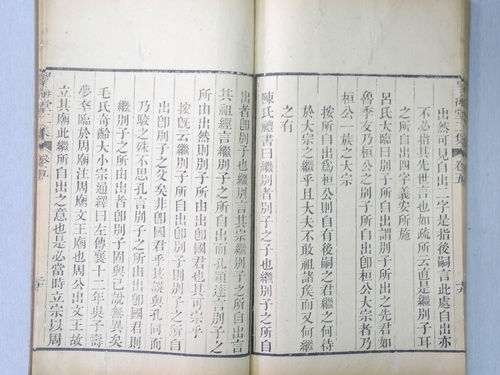 出然可見自出二字是指後嗣言此處自出亦
不必指其先世言也如疏所云直是繼別子耳
之所自出四字義安所施
呂氏大臨曰別子所自出謂別子所出之先君如
魯季友乃桓公之別子所自出卽桓公大宗者乃
桓公一族之大宗
按所自出爲桓公則自有後桓公繼之何待
於大宗之繼且大夫不敢祖諸矦而又何繼
之有
陳氏禮書曰繼別者別子之子也繼別子之所自
出者卽別子也繼別言其宗繼別子之所自出言
其祖經言繼別子之所自出而孔穎達言別子之
所由出然則別子所由出卽國君也其可宗乎
按旣云繼別子之所自出卽別子則別子之所自
出卽別子之父矣非卽國君乎其誤與孔同而
乃駁之殊不思孔言別子之所由出卽國君則
繼別子之所由出者卽別子固與已說無異矣
毛氏奇齡大小宗通繹曰左傳襄十二年吳子壽
夢卒臨於周廟注周廟文王廟也周公出文王故
立其廟此繼所自出之意也是必當時立宗以周